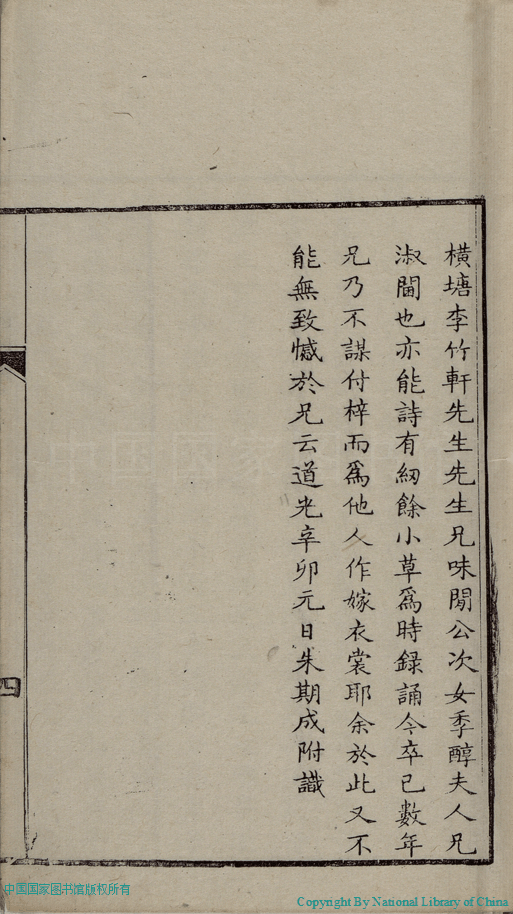 横塘李竹軒先生先生兄味閒公次女季醇夫人兄
淑閫也亦能詩有紉餘小草爲時録誦今卒已數年
兄乃不謀付梓而爲他人作嫁衣裳耶余於此又不
能無致憾於兄云道光辛卯元日朱期成附識
四
中国国家图书馆版权所有
Copyright By National Library of China